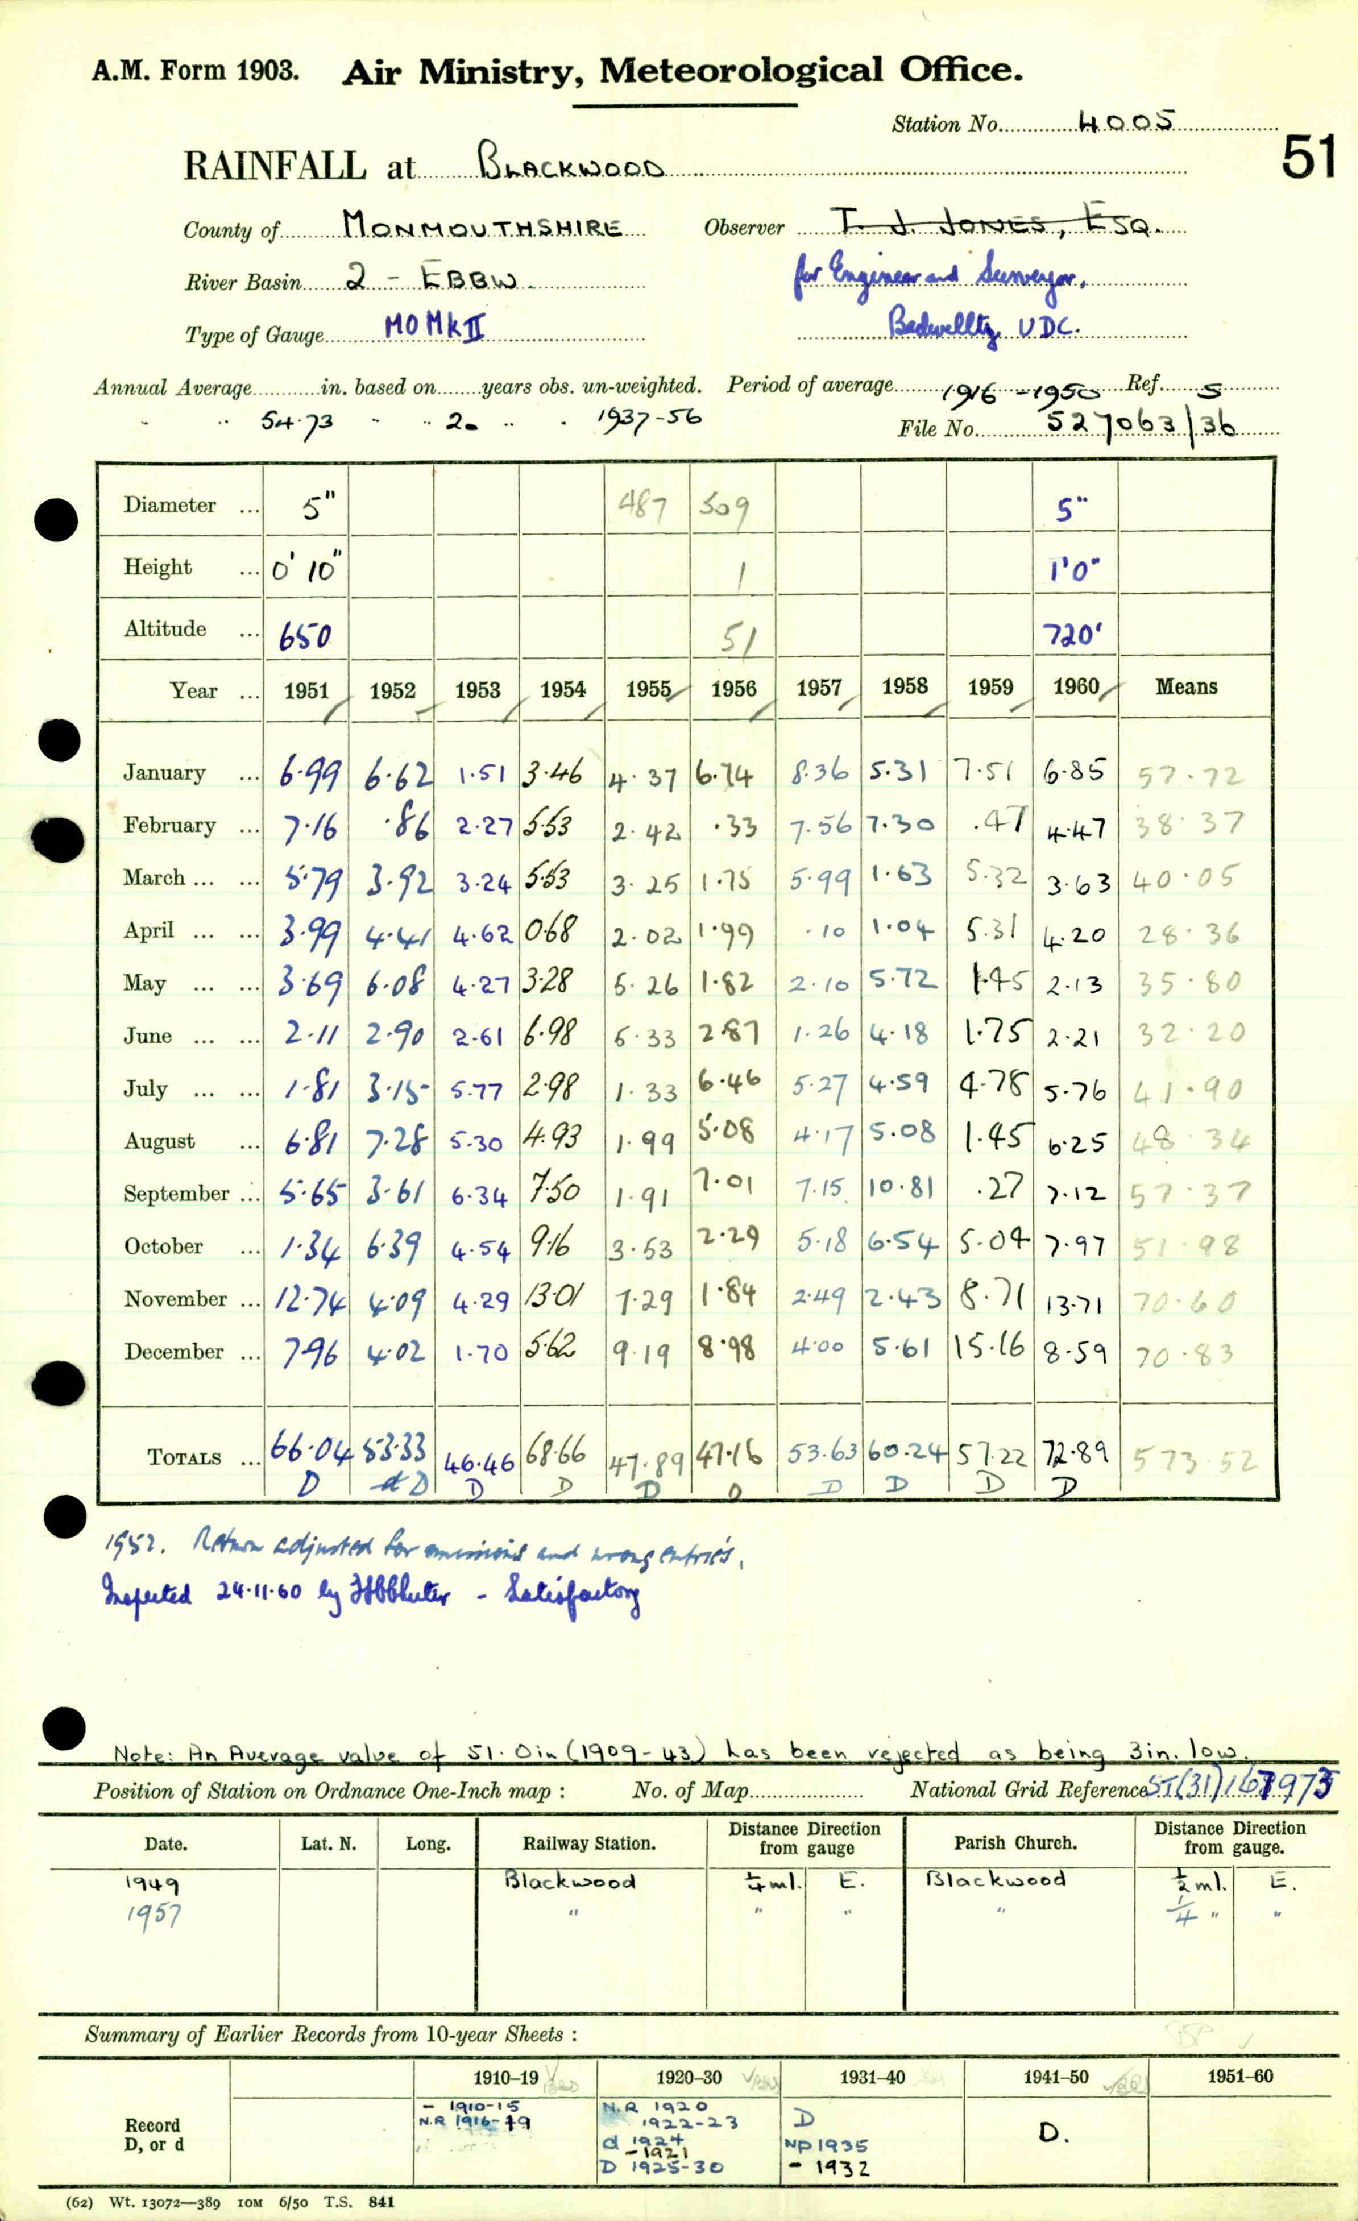 A.M. Form 1903. Air Ministry, Meteorological Office.
Station No. 4005
51
RAINFALL at BLACKWOOD
County of MONMOUTHSHIRE Observer T. J. JONES, ESQ.
River Basin 2 - EBBW. for Engineer and Surveyor,
Type of Gauge MO MK II Bedwellty UDC.
Annual Average in. based on years obs. un-weighted. Period of average 1916-1950 Ref. S
" " 54.73 " " 20 " " 1937-56 File No. 527063/36
Diameter ... 5" 487 509 5"
Height ... 0' 10" 1 1'0"
Altitude ... 650 51 720'
Year ... 1951 1952 1953 1954 1955 1956 1957 1958 1959 1960 Means
January ... 6.99 6.62 1.51 3.46 4.37 6.74 8.36 5.31 7.51 6.85 57.72
February ... 7.16 .86 2.27 5.53 2.42 .33 7.56 7.30 .47 4.47 38.37
March ... ... 5.79 3.92 3.24 5.53 3.25 1.75 5.99 1.63 5.32 3.63 40.05
April ... ... 3.99 4.41 4.62 0.68 2.02 1.99 .10 1.04 5.31 4.20 28.36
May ... ... 3.69 6.08 4.27 3.28 5.26 1.82 2.10 5.72 1.45 2.13 35.80
June ... ... 2.11 2.90 2.61 6.98 5.33 2.87 1.26 4.18 1.75 2.21 32.20
July ... ... 1.81 3.15 5.77 2.98 1.33 6.46 5.27 4.59 4.78 5.76 41.90
August ... 6.81 7.28 5.30 4.93 1.99 5.08 4.17 5.08 1.45 6.25 48.34
September ... 5.65 3.61 6.34 7.50 1.91 7.01 7.15 10.81 .27 7.12 57.37
October ... 1.34 6.39 4.54 9.16 3.53 2.29 5.18 6.54 5.04 7.97 51.98
November ... 12.74 4.09 4.29 13.01 7.29 1.84 2.49 2.43 8.71 13.71 70.60
December ... 7.96 4.02 1.70 5.62 9.19 8.98 4.00 5.61 15.16 8.59 70.83
TOTALS ... 66.04 53.33 46.46 68.66 47.89 47.16 53.63 60.24 57.22 72.89 573.52
D d D D D D D D D D D
1952. Return adjusted for omissions and wrong entries.
Inspected 24.11.60 by - Satisfactory
Note: An Average value of 51.0in (1909-43) has been rejected as being 3in. low.
Position of Station on Ordnance One-Inch map : No. of Map National Grid Reference ST(31)167975
Date. Lat. N. Long. Railway Station. Distance from gauge Direction Parish Church. Distance from gauge. Direction
1949 Blackwood ¼ ml. E. Blackwood ½ ml. E.
1957 " " " " ¼ " "
Summary of Earlier Records from 10-year Sheets :
1910–19 1920–30 1931–40 1941–50 1951–60
Record D, or d
- 1910-15
N.R 1916-19
N.R 1920
1922-23
d 1924
- 1921
D 1925-30
D
NP 1935
- 1932
D.
(62) Wt. 13072—389 10M 6/50 T.S. 841